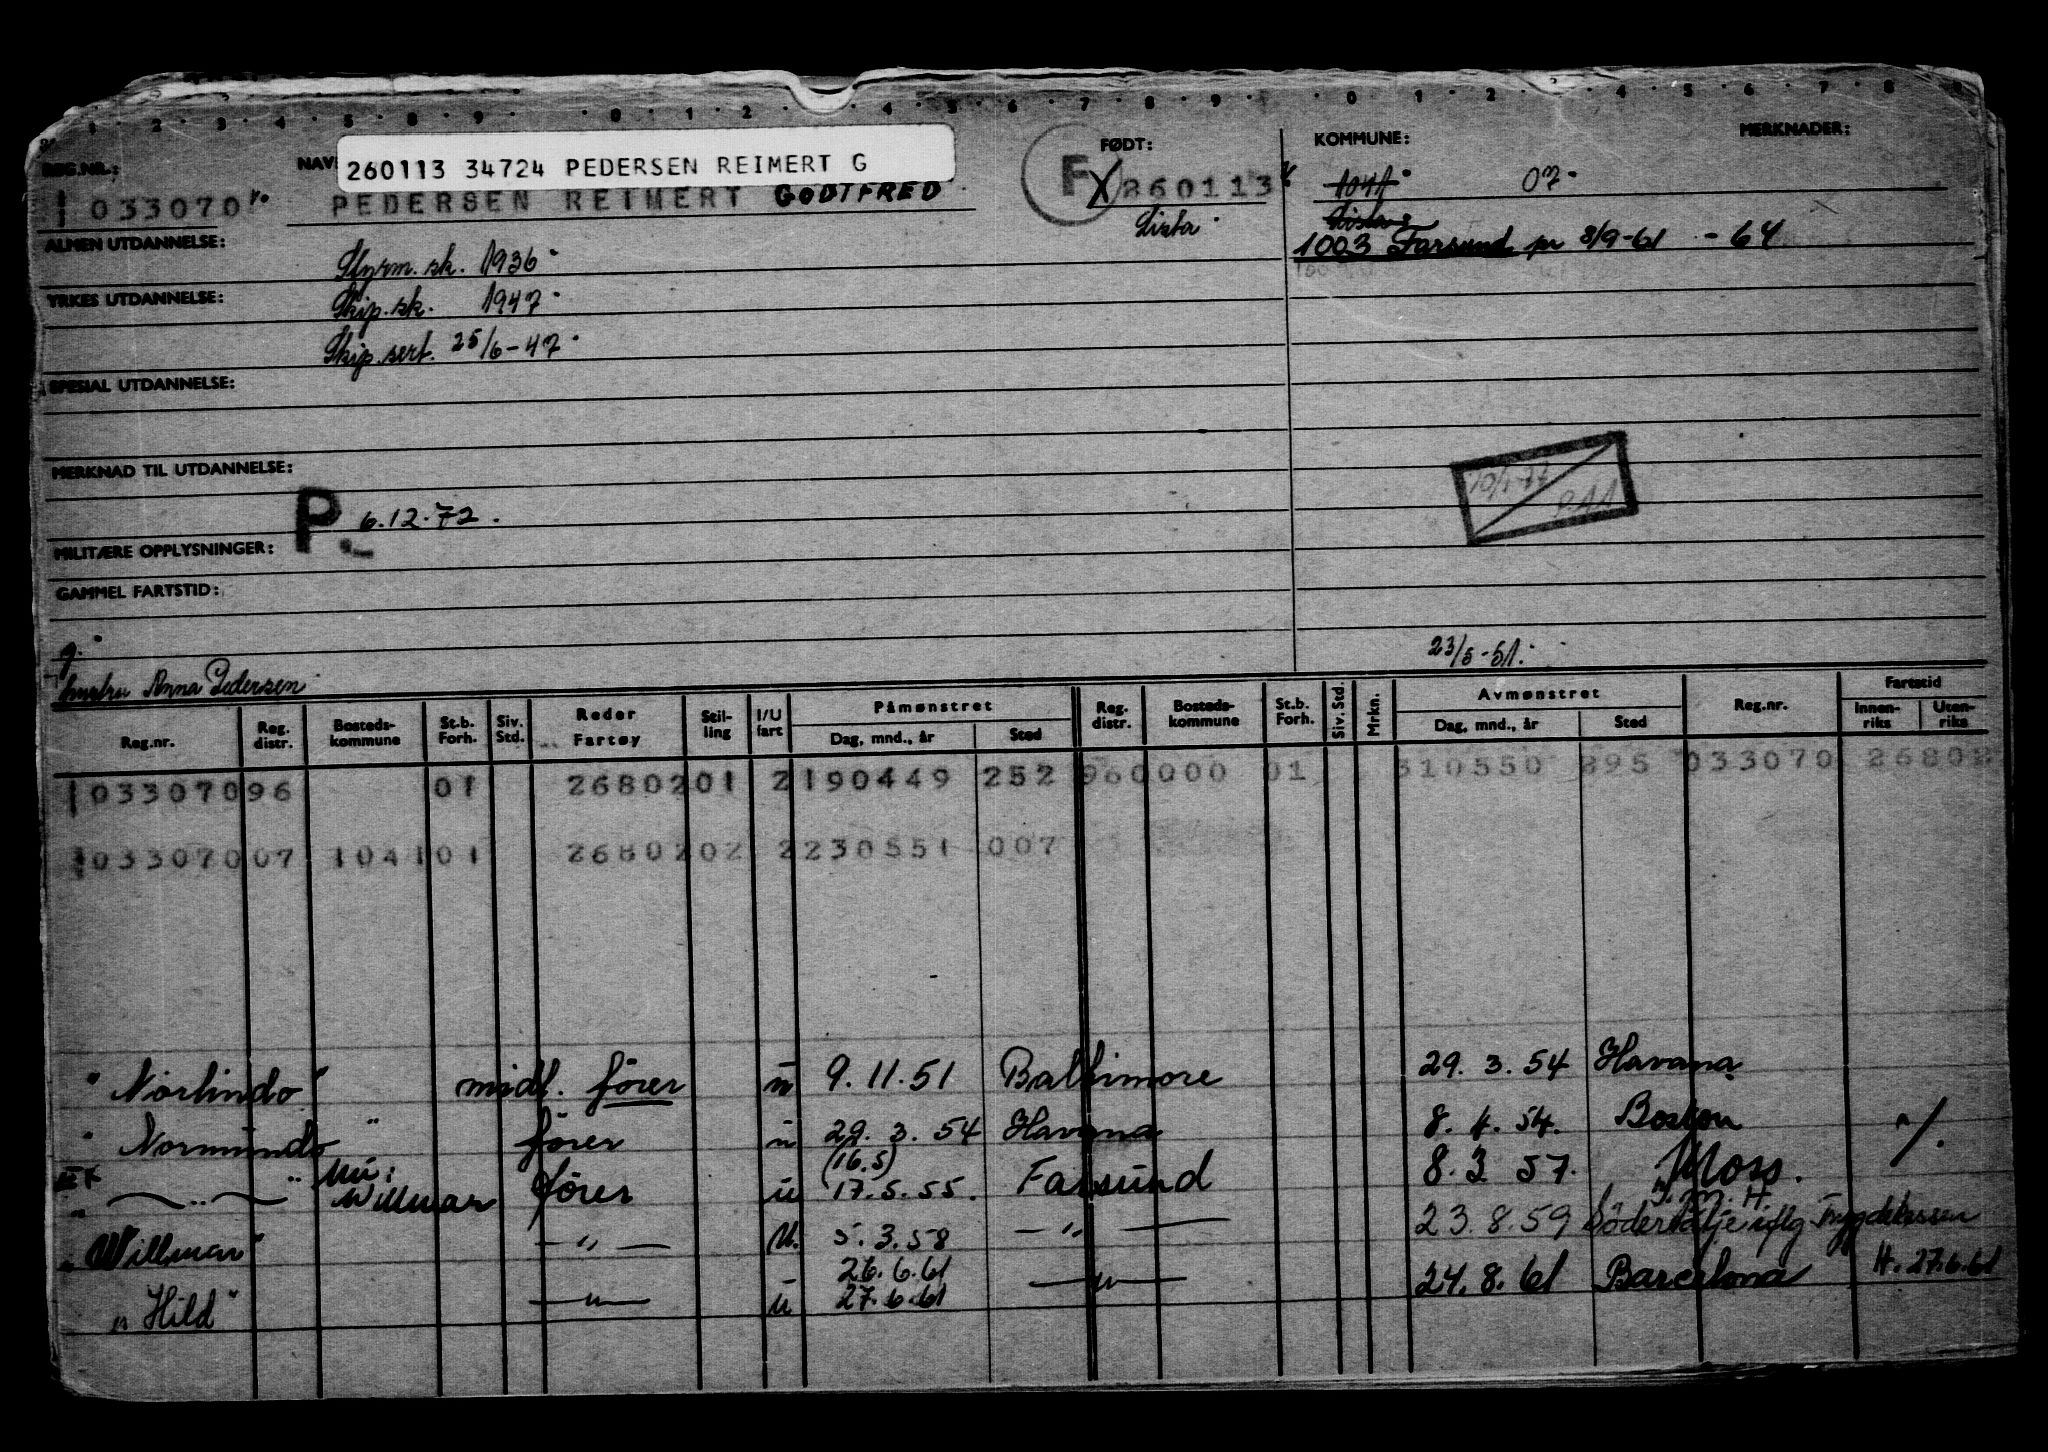 1 · 2 · 3 · 4 · 5 · 8 · 9 · 0 · 1 · 2 4 · 5 · 6 · 7 · 8 · 9 · · 0 1 · 2 · 4 · 5 · 6 · 7 · 8
REG.NR.: NAV FØDT: KOMMUNE: MERKNADER:
260113 34724 PEDERSEN REIMERT G
033070 PEDERSEN REIMERT GODTFRED F X 260113 1041 07
Lista Lista
1003 Farsund pr 8/9-61 - 64
ALMEN UTDANNELSE: Styrm. sk. 1936
YRKES UTDANNELSE: Skip. sk. 1947
Skip. sert. 25/6-47
SPESIAL UTDANNELSE:
MERKNAD TIL UTDANNELSE:
P. 6.12.72.
MILITÆRE OPPLYSNINGER:
GAMMEL FARTSTID:
g.
hustru Anna Pedersen 23/5-51.
Reg.nr. Reg. distr. Bosteds-kommune St.b. Forh. Siv. Std. Reder Fartøy Stil-ling I/U fart Påmønstret Dag, mnd., år Sted Reg. distr. Bosteds-kommune St.b. Forh. Siv. Std. Mrkn. Avmønstret Dag, mnd., år Sted Reg.nr. Fartstid Innen-riks Uten-riks
033070 96 01 26802 01 2 190449 252 960000 01 310550 895 033070 26802
033070 07 1041 01 26802 02 2 230551 007
"Norlindo" midl. fører u 9.11.51 Baltimore 29.3.54 Havana
" Normindo " fører u 29.3.54 Havana 8.4.54. Boston
(16.5)
" nu: Willmar fører u 17.5.55. Farsund 8.3 57. Moss.
"Willmar" — " — U. 5.3.58 — " — 23.8.59 Södertälje iflg Trygdekassen
26.6.61
"Hild" — " — u 27.6.61 — " — 24.8.61 Barcelona H. 27.6.61